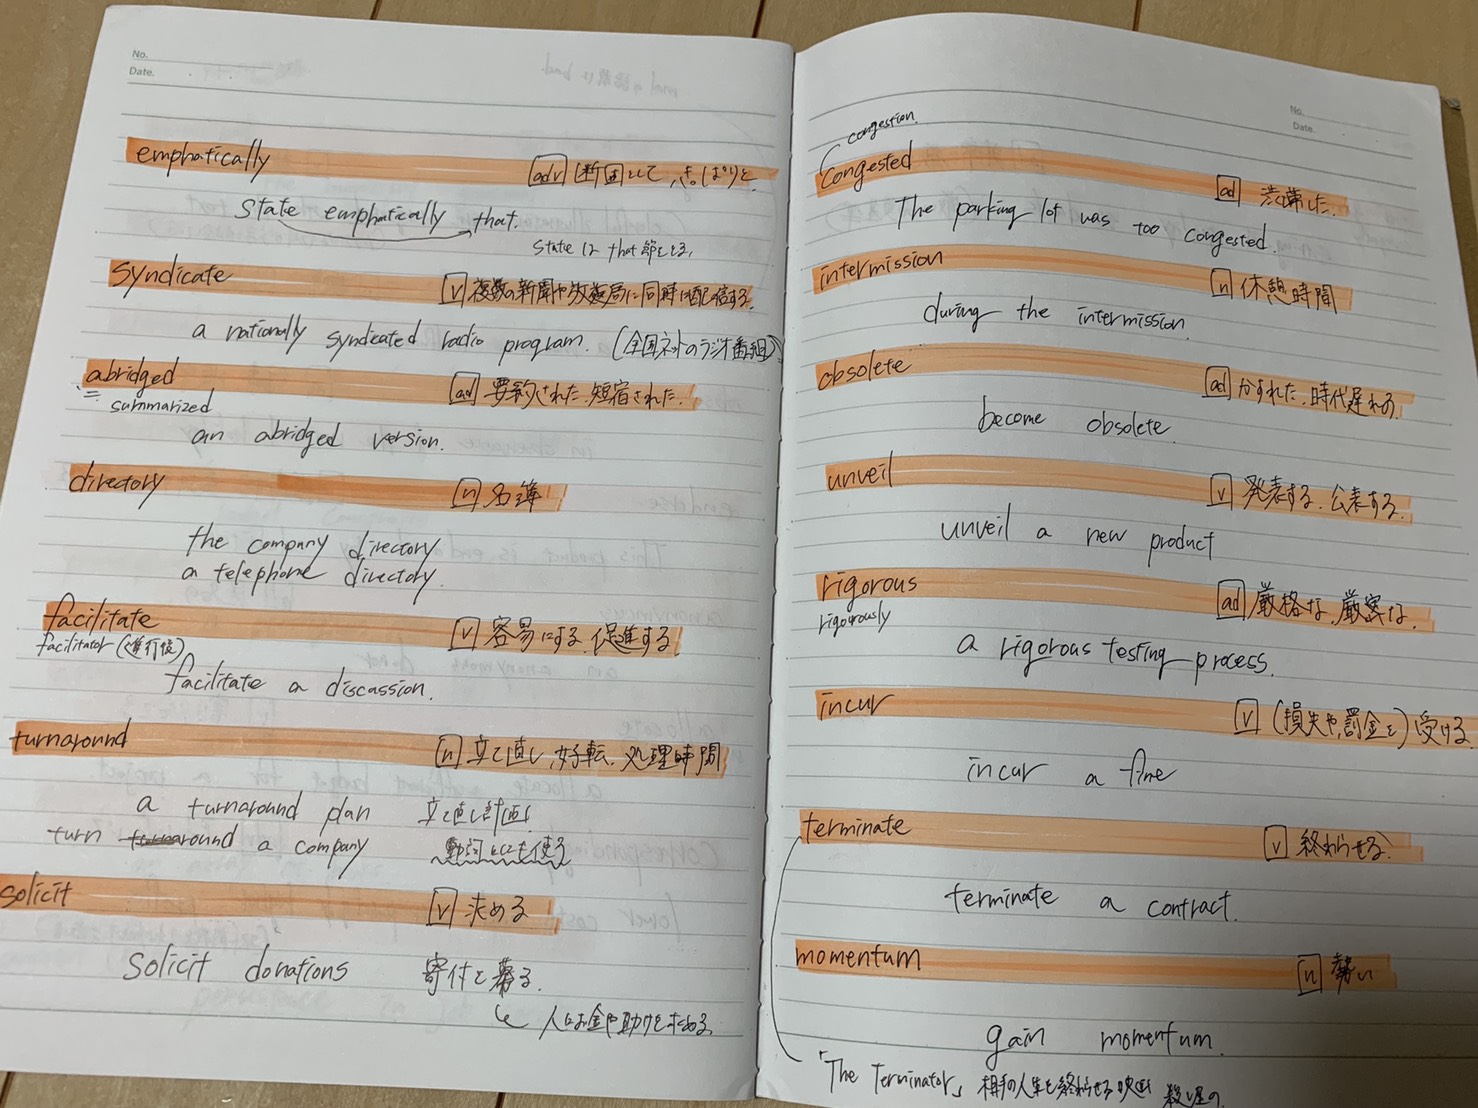 No.
Date.
emphatically [adv] 断固として, きっぱりと.
State emphatically that.
State は that 節をとる.
syndicate [v] 複数の新聞や放送局に同時に配信する.
a nationally syndicated radio program. (全国ネットのラジオ番組)
abridged [ad] 要約された. 短宿された.
= summarized
an abridged version.
directory [n] 名簿
the company directory
a telephone directory.
facilitate [v] 容易にする. 促進する
facilitator (進行役)
facilitate a discassion.
turnaround [n] 立て直し, 好転. 処理時間
a turnaround plan 立て直し計画
turn around a company 動詞としても使う
solicit [v] 求める
solicit donations 寄付を募る.
人にお金や助けを求める.
No.
Date.
congestion.
congested [ad] 渋滞した.
The parking lot was too congested.
intermission [n] 休憩時間
during the intermission.
obsolete [ad] かすれた. 時代遅れの.
become obsolete.
unveil [v] 発表する. 公表する.
unveil a new product
rigorous [ad] 厳格な. 厳密な.
rigorously
a rigorous testing process.
incur [v] (損失や罰金を) 受ける
incur a fine
terminate [v] 終わらせる.
terminate a contract.
momentum [n] 勢い
gain momentum.
「The Terminator」 相手の人生を終わらせる 殺し屋の